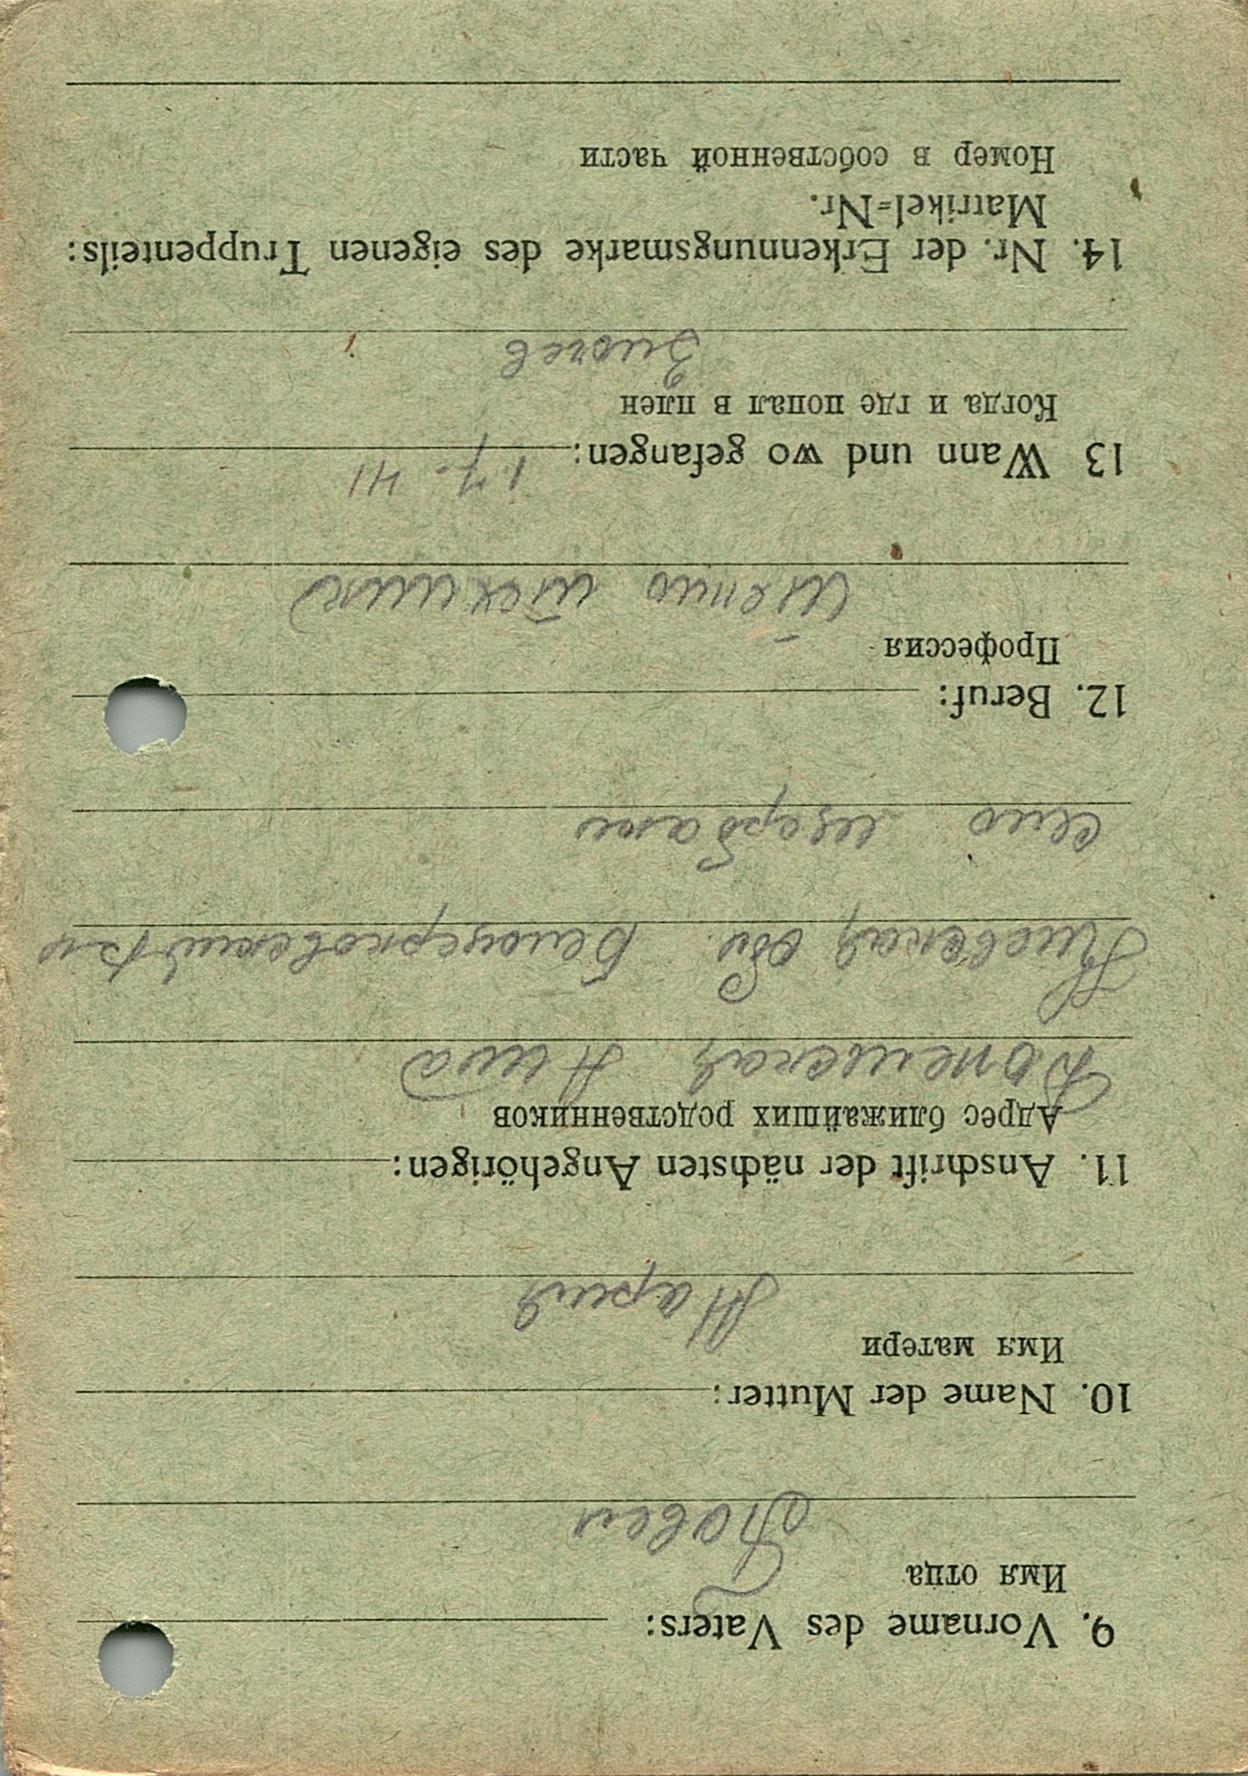 9. Vorname des Vaters:
Имя отца
Павел
10. Name der Mutter:
Имя матери
Мария
11. Anschrift der nächsten Angehörigen:
Адрес ближайших родственников
Анна
Киевская обл Белоцерковский
село
12. Beruf:
Профессия
13 Wann und wo gefangen:
1.7.41
Когда и где попал в плен
14. Nr. der Erkennungsmarke des eigenen Truppenteils:
Matrikel=Nr.
Номер в собственной части